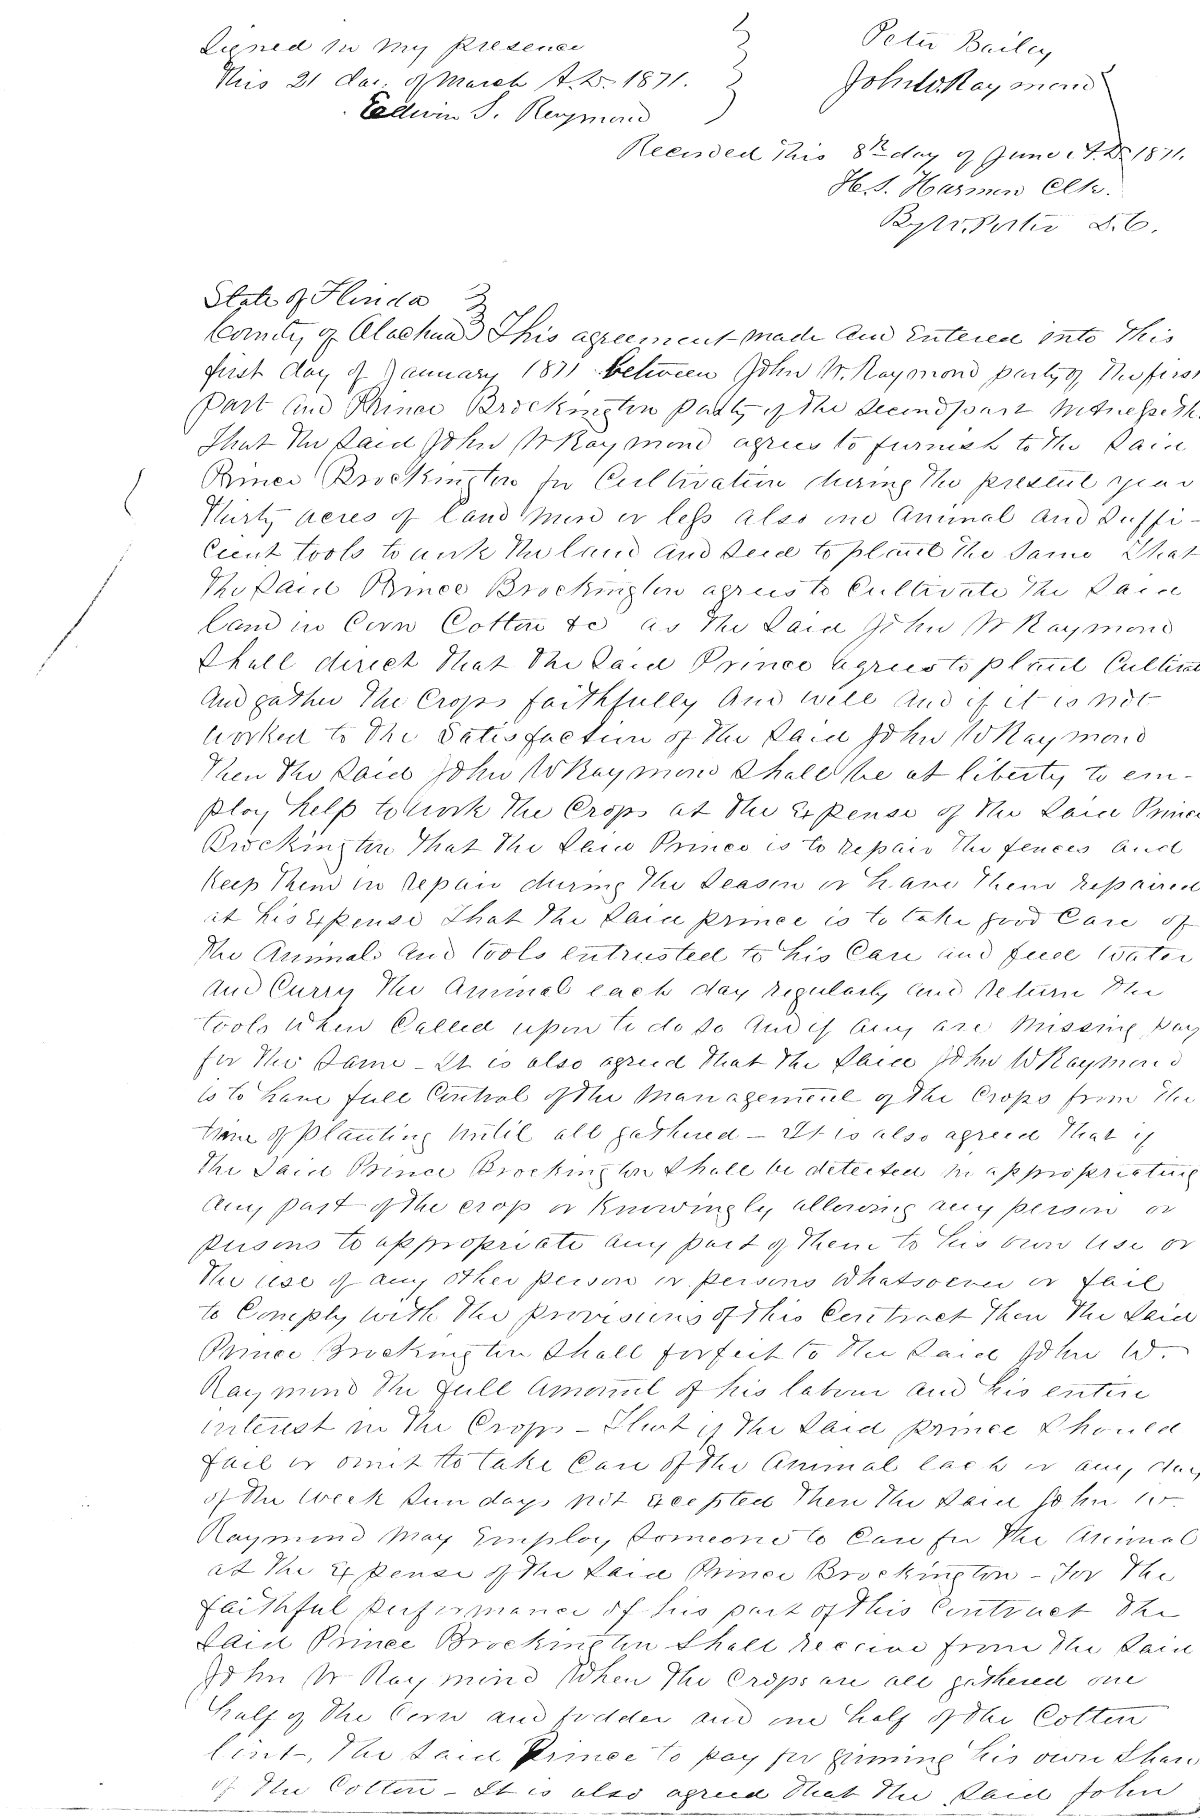 Signed in my presence
This 21 day of March A.D. 1871.
Edwin S. Raymond
Peter Bailey
John W. Raymond
Recorded This 8th day of June A.D. 1871.
H.S. Harmon Clk.
By W. Porter D.C.
State of Florida
County of Alachua This agreement made and Entered into This
first day of January 1871 between John W. Raymond party of the first
part and Prince Brockington party of the second part Witnesseth
That the Said John W Raymond agrees to furnish to the Said
Prince Brockington for Cultivation during the present year
Thirty acres of land more or less also one animal and Suffi-
cient tools to work the land and Seed to plant the Same That
the Said Prince Brockington agrees to Cultivate the Said
land in Corn Cotton &c as the Said John W Raymond
Shall direct that the Said Prince agrees to plant Cultivate
and gather the Crops faithfully and well and if it is not
worked to the Satisfaction of the Said John W Raymond
Then the Said John W Raymond Shall be at liberty to em-
ploy help to work the Crops at the Expense of the Said Prince
Brockington That the Said Prince is to repair the fences and
Keep them in repair during the Season or have them repaired
at his Expense That the Said prince is to take good Care of
the Animals and tools entrusted to his Care and feed Water
and Curry the Animal each day regularly and return the
tools When Called upon to do so and if any are Missing pay
for the Same - It is also agreed that the Said John W Raymond
is to have full Control of the Management of the Crops from the
time of planting until all gathered - It is also agreed that if
the Said Prince Brockington Shall be detected in appropriating
any part of the crop or Knowingly allowing any person or
persons to appropriate any part of them to his own use or
the use of any other person or persons Whatsoever or fail
to Comply with the provisions of this Contract Then the Said
Prince Brockington Shall forfeit to the Said John W.
Raymond the full amount of his labour and his entire
interest in the Crops - That if the Said prince Should
fail or omit to take Care of the Animal each or any day
of the Week Sundays not excepted Then the Said John W.
Raymond May Employ Someone to Care for the Animal
at the Expense of the Said Prince Brockington - For the
faithful performance of his part of this Contract the
Said Prince Brockington Shall receive from the Said
John W Raymond When the Crops are all gathered one
half of the Corn and fodder and one half of the Cotton
lint, The Said Prince to pay for ginning his own Share
of the Cotton - It is also agreed that the Said John